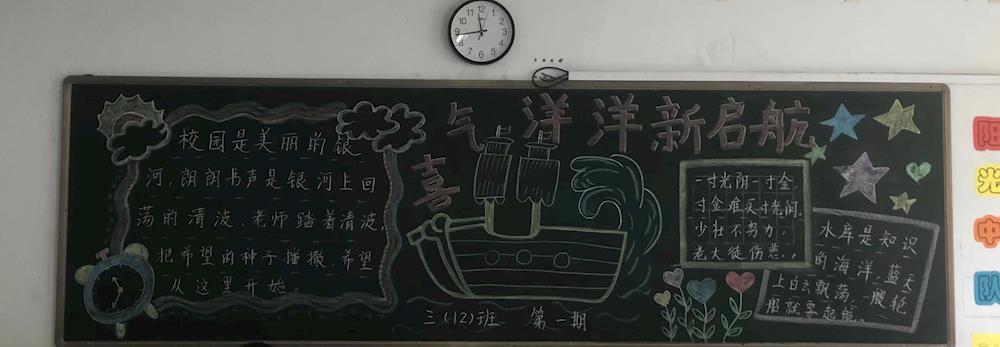 喜气洋洋新启航
校园是美丽的银
河,朗朗书声是银河上回
荡的清波,老师踏着清波,
把希望的种子播撒,希望
从这里开始。
一寸光阴一寸金,
寸金难买寸光阴。
少壮不努力,
老大徒伤悲。
水库是知识
的海洋,蓝天
上白云飘荡,一艘轮
船就要起航。
三(12)班 第一期
12
光
中
队